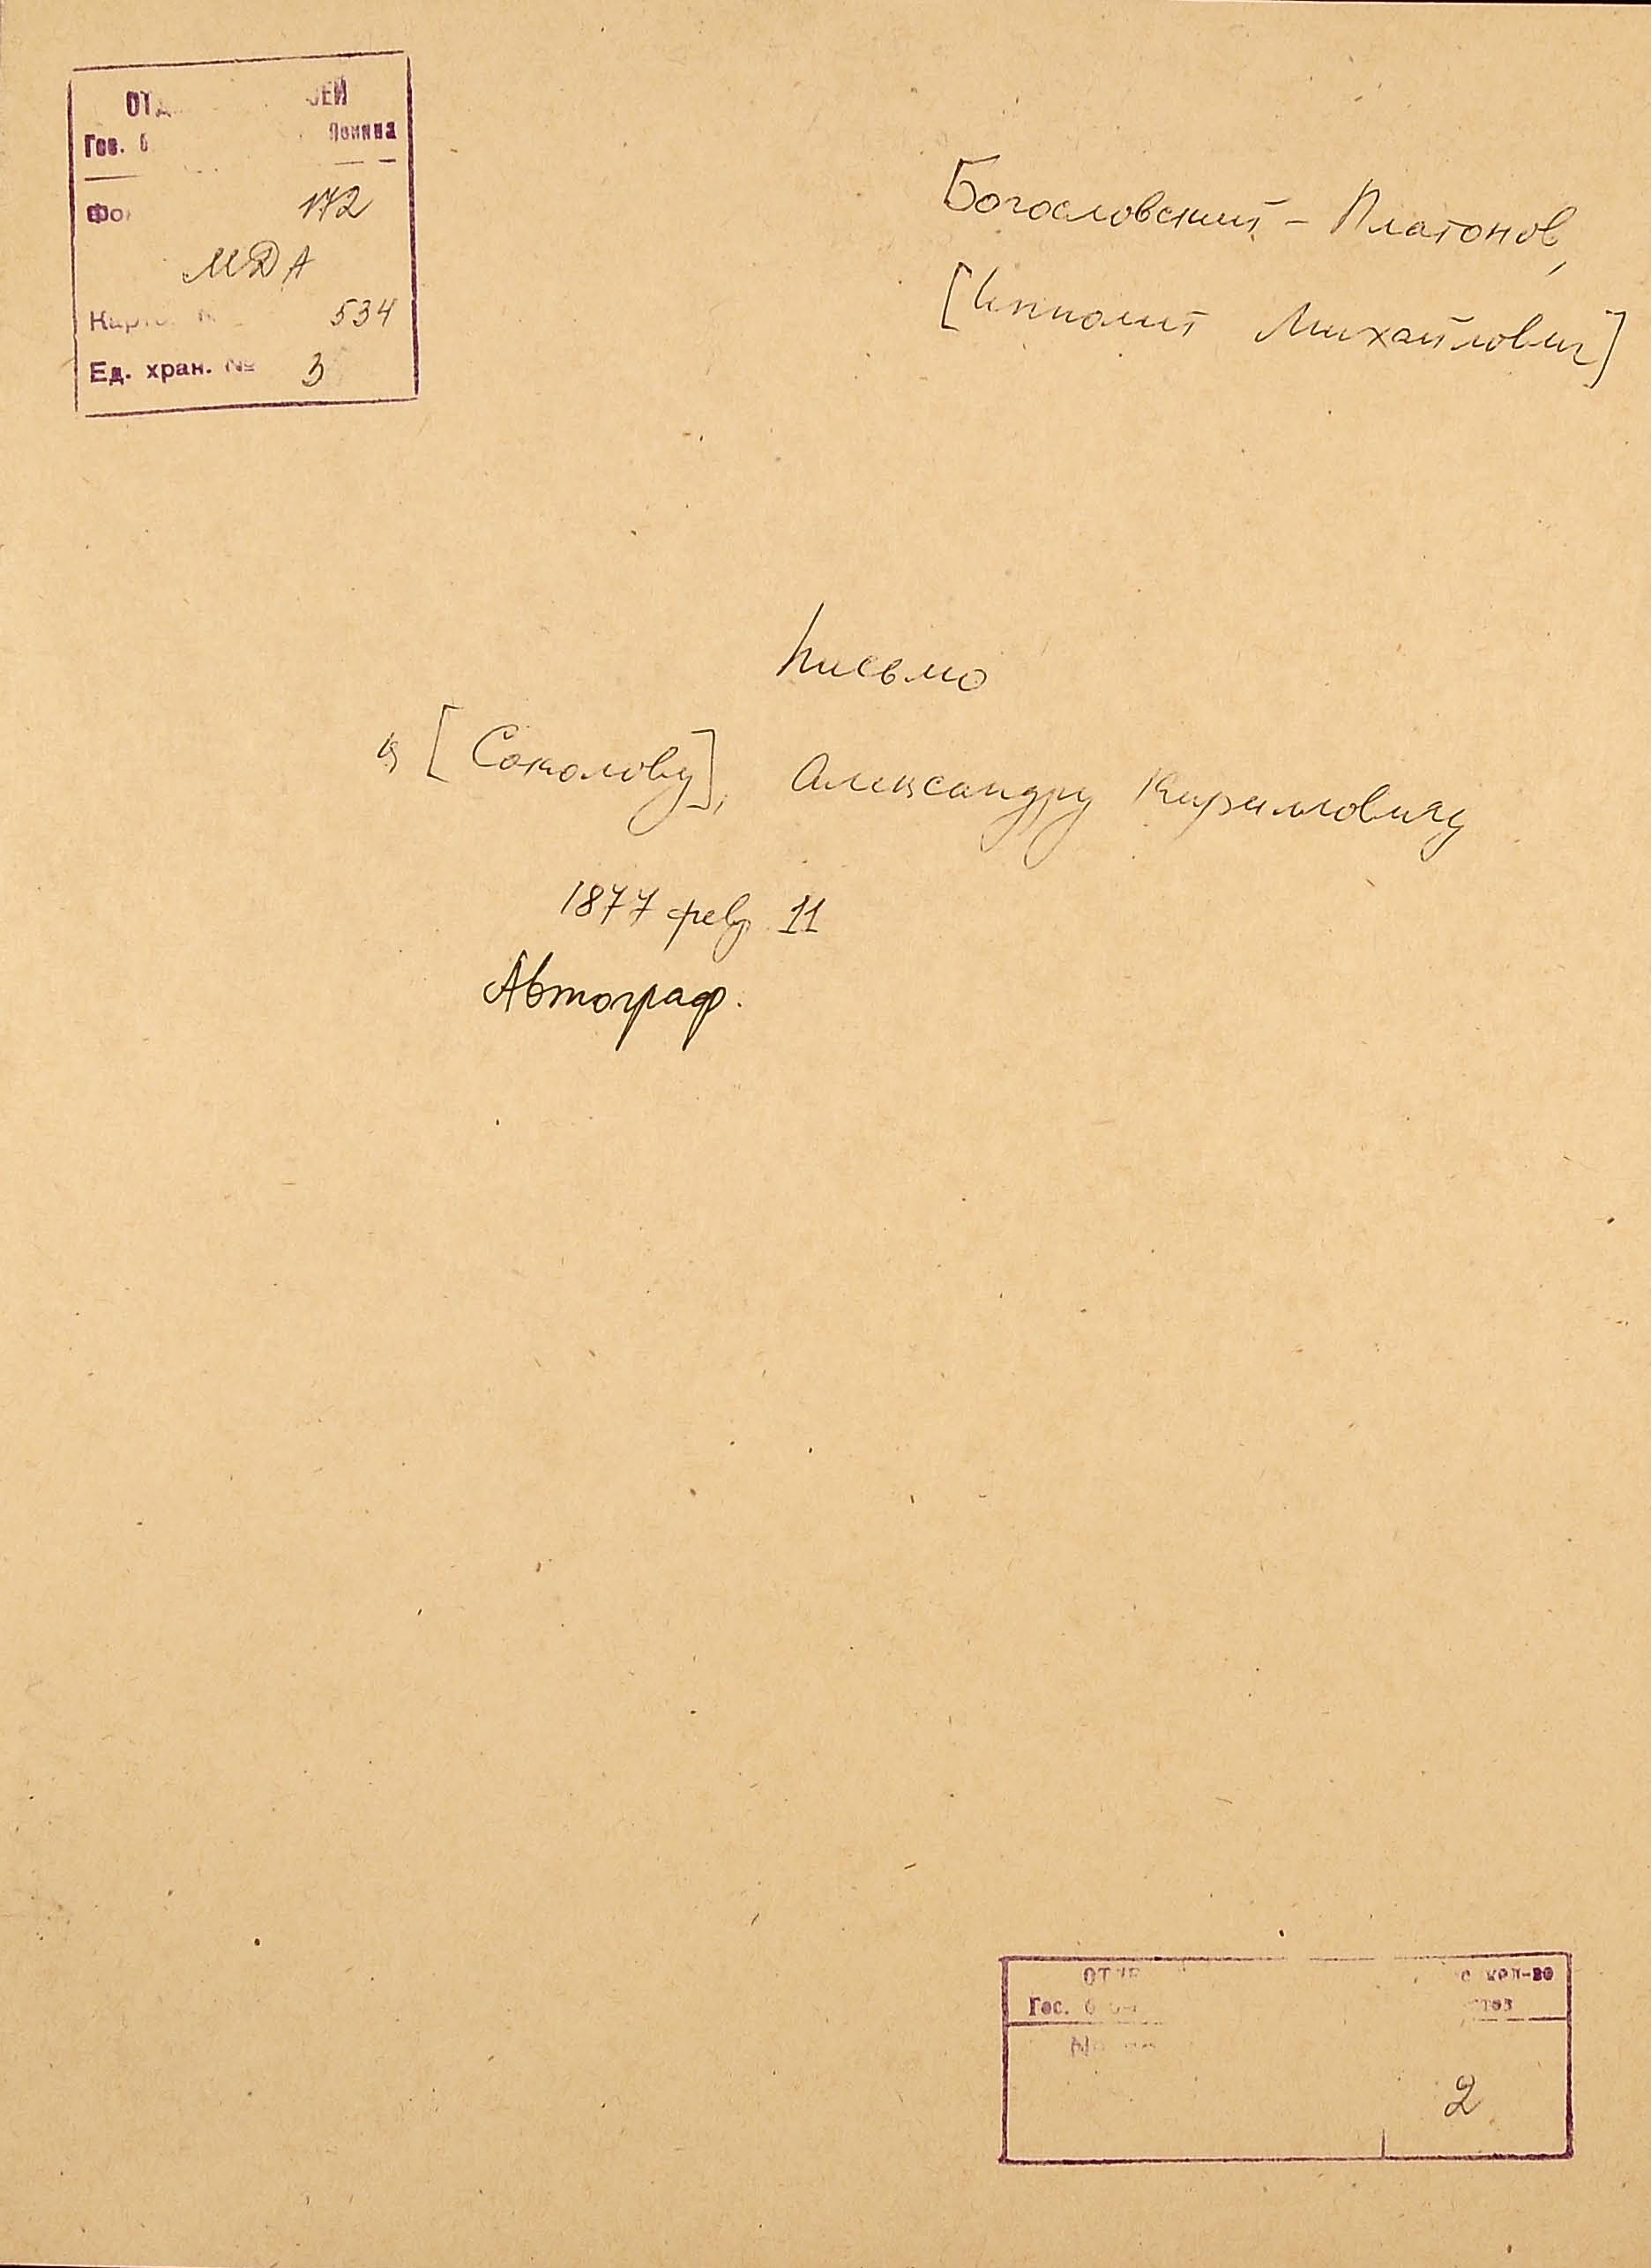 Гос.
172
МДА
534
Ед. хран. № 3
Богословский - Платонов,
[Ипполит Михайлович]
Письмо
к [Соколову], Александру Кирилловичу
1877 февр 11
Автограф.
кол-во
Гос.
2